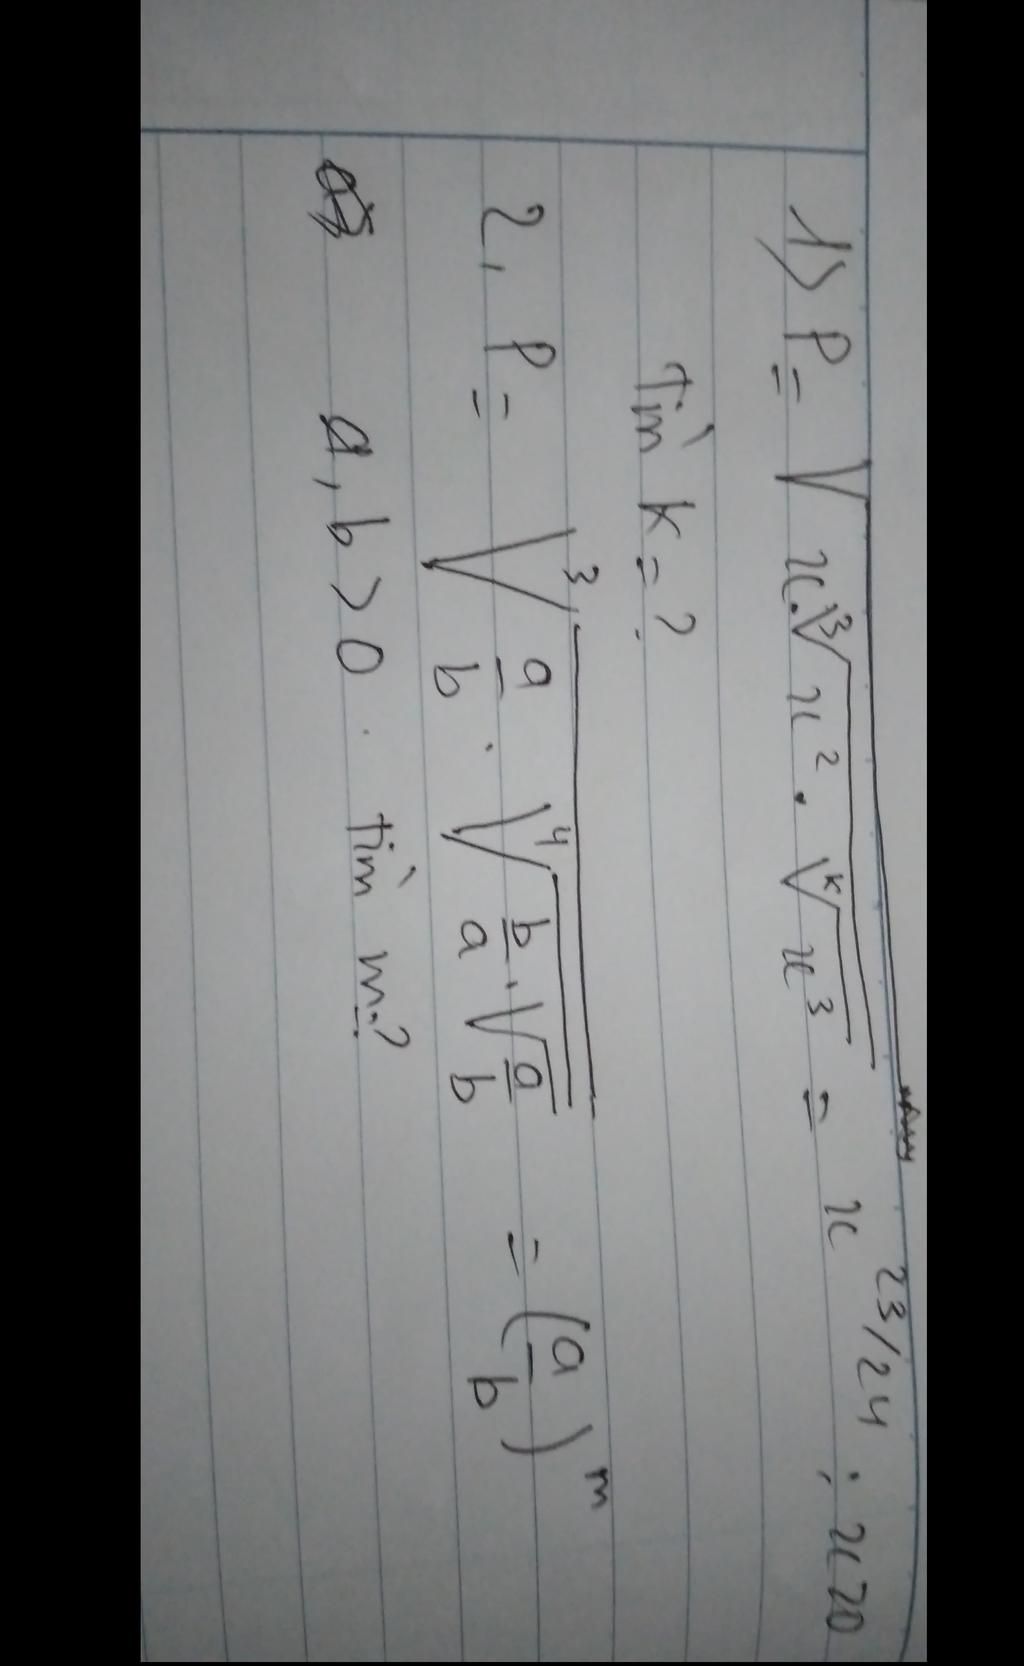 1) P = √(x.∛(x² . ᵏ√(x³))) = x^23/24 ; x>0
Tìm k = ?
2, P = ∛(a/b . ∜(b/a . √(a/b))) = (a/b)^m
a, b > 0 . Tìm m?